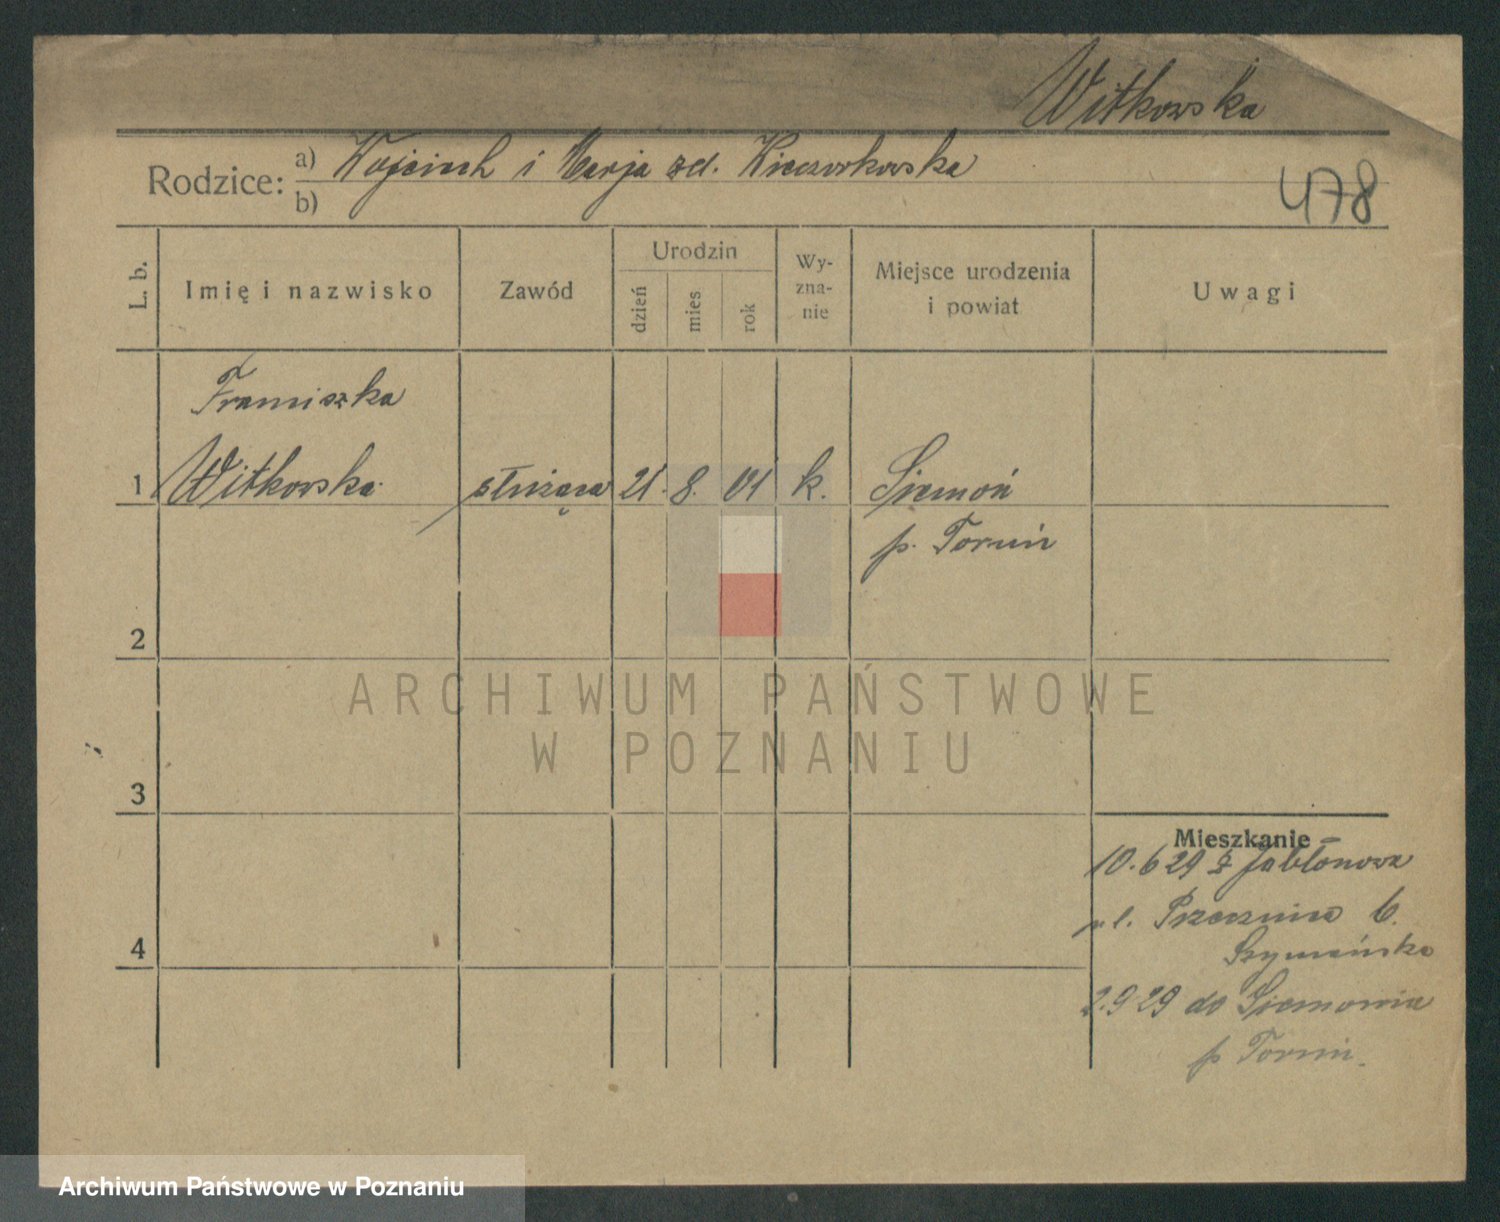 Witkowska
Rodzice: a) Wojciech i Marja zd. Wieczorkowska
b)
478
L. b.
Imię i nazwisko
Zawód
Urodzin
dzień
mies
rok
Wy-
zna-
nie
Miejsce urodzenia
i powiat
Uwagi
Franciszka
1 Witkowska służąca 21. 8. 01 k. Siemoń
p. Toruń
2
3
4
ARCHIWUM PAŃSTWOWE
W POZNANIU
Mieszkanie
10.6 29 z Jabłonowa
ul. Przecznica 6.
Szymańska
2.9 29 do Siemonia
p Toruń.
Archiwum Państwowe w Poznaniu